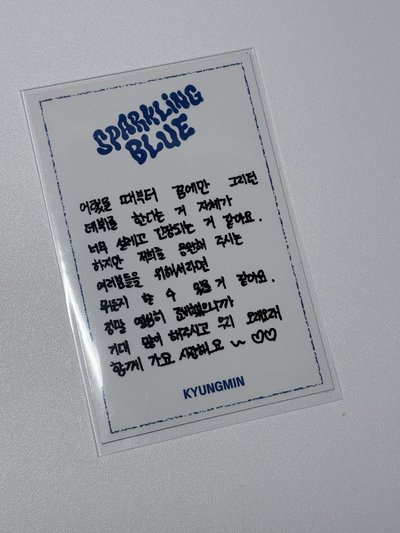 SPARKLING
BLUE
어렸을 때부터 꿈에만 그리던
데뷔를 한다는 거 자체가
너무 설레고 긴장되는 거 같아요.
하지만 저희를 응원해 주시는
여러분들을 위해서라면
뭐든지 할 수 있을 거 같아요.
정말 열심히 준비했으니까
기대 많이 해주시고 우리 오래오래
함께 가요 사랑해요 ~ ♡♡
KYUNGMIN